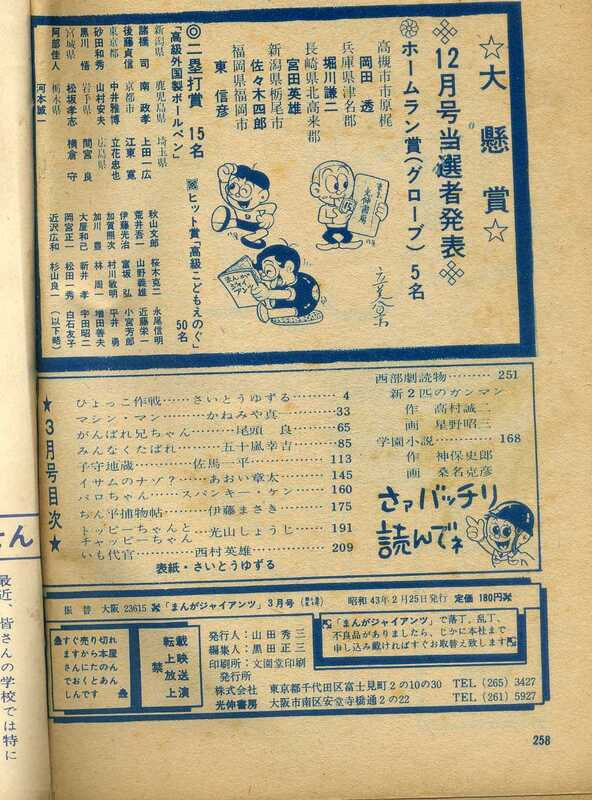 ☆大懸賞☆
12月号当選者発表
ホームラン賞(グローブ) 5名
高槻市市原梶
岡田 透
兵庫県津名郡
堀川謙二
長崎県北高来郡
宮田英雄
新潟県栃尾市
佐々木四郎
福岡県福岡市
東 信彦
◎二塁打賞 15名
「高級外国製ボールペン」
新潟県
諸橋 司
後藤貞信
東京都
砂田和秀
黒川 悟
宮城県
阿部佳人
鹿児島県
南 政孝
京都市
中井雅博
山村安夫
岩手県
松坂孝志
栃木県
河本誠一
埼玉県
上田一広
江東 寛
立花忠也
広島県
間宮 良
横倉 守
ヒット賞「高級こどもえのぐ」
50名
秋山文郎
荒井吾一
伊藤光治
加賀照次
加川 豊
大屋和己
岡宮正一
近沢広和
桜木克二
山野義雄
富坂 弘
村川敏明
林 周一
新井 孝
松田一秀
杉山良一
永尾信明
近藤栄一
小宮芳郎
平井 勇
増田善夫
宇田昭二
白石友子
(以下略)
まんがジャイアンツ
光伸書房
★3月号目次★
ひよっこ作戦……さいとうゆずる……4
マシン・マン……かねみや真……33
がんばれ兄ちゃん……尾頭 良……65
みんなくたばれ……五十嵐幸吉……85
子守地蔵……佐馬一平……113
イサムのナゾ?……あおい章太……145
バロちゃん……スパンキー・ケン……160
ちん平捕物帖……伊藤まさき……175
トッピーちゃんと
チャッピーちゃん……光山しょうじ……191
いも代官……西村英雄……209
表紙・さいとうゆずる
西部劇読物……251
新2匹のガンマン
作 高村誠二
画 星野昭三
学園小説……168
作 神保史郎
画 桑名克彦
さァバッチリ
読んでネ
振替 大阪 23615 「まんがジャイアンツ」3月号 昭和43年2月25日発行 定価 180円
すぐ売り切れ
ますから本屋
さんにたのん
でおくとあん
しんです
禁 転載上映放送上演
発行人:山田秀三
編集人:黒田正三
印刷所:文園堂印刷
発行所
株式会社
光伸書房
「まんがジャイアンツ」で落丁、乱丁、
不良品がありましたら、じかに本社まで
申し込み戴ければすぐお取替え致します
東京都千代田区富士見町2の10の30 TEL (265) 3427
大阪市南区安堂寺橋通2の22 TEL (261) 5927
258
さん
最近、皆さんの学校では特に